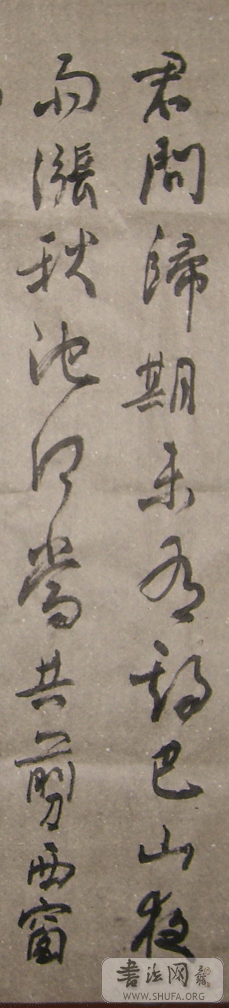 君問歸期未有期巴山夜
雨漲秋池何當共剪西窗
書法网
WWW.SHUFA.ORG